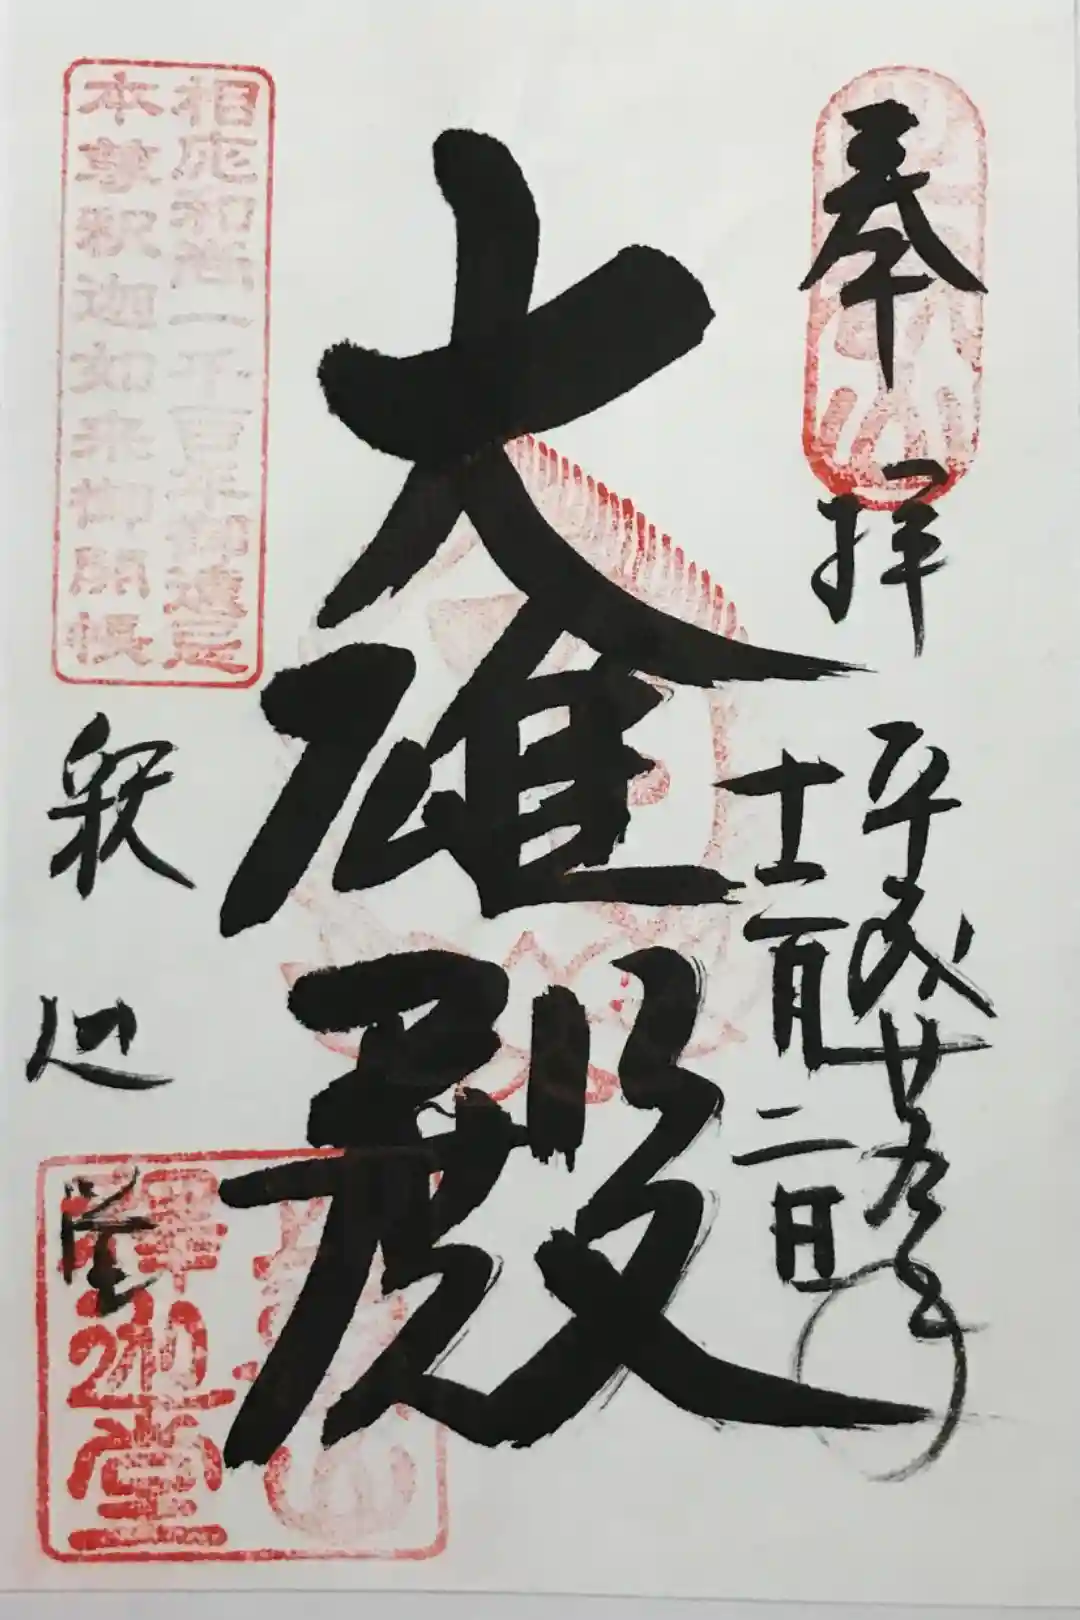 奉拝
平成廿九年
十二月二日
大雄殿
相応和尚一千百年御遠忌
本尊釈迦如来御開帳
釈迦堂
釋迦堂